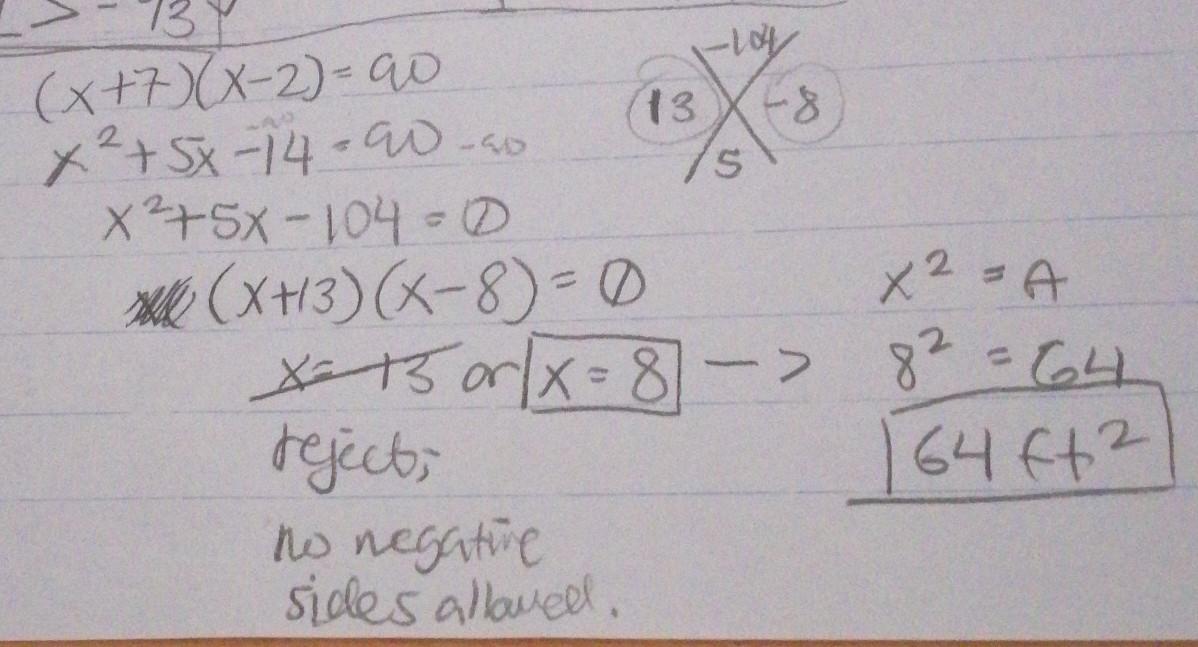 > - 13
(x+7)(x-2)=90
-90
x²+5x-14=90-90
x²+5x-104=0
(x+13)(x-8)=0
x=-13 or x=8 ->
reject;
no negative
sides allowed.
-104
13 -8
5
x²=A
8²=64
64 ft²